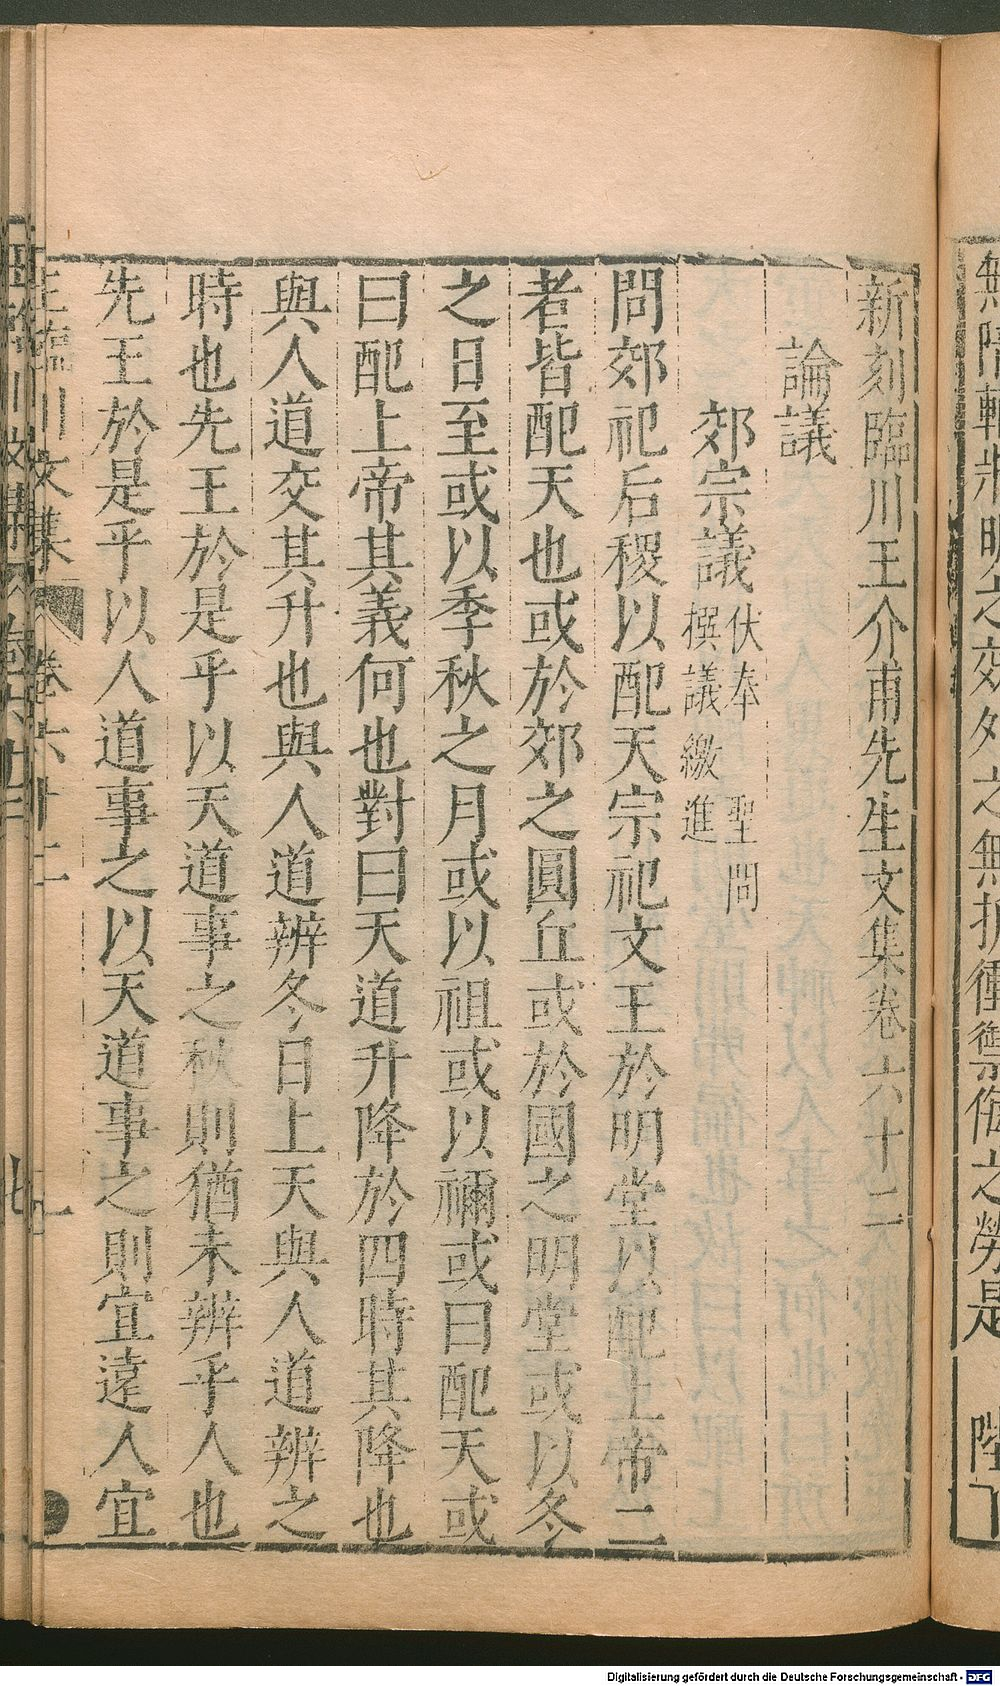 新刻臨川王介甫先生文集卷六十二
論議
郊宗議
伏奉 聖問
撰議繳進
問郊祀后稷以配天宗祀文王於明堂以配上帝二
者皆配天也或於郊之圓丘或於國之明堂或以冬
之日至或以季秋之月或以祖或以禰或曰配天或
曰配上帝其義何也對曰天道升降於四時其降也
與人道交其升也與人道辨冬日上天與人道辨之
時也先王於是乎以天道事之秋則猶未辨乎人也
先王於是乎以人道事之以天道事之則宜遠人宜
王臨川文集 卷六十二 一
Digitalisierung gefördert durch die Deutsche Forschungsgemeinschaft - DFG